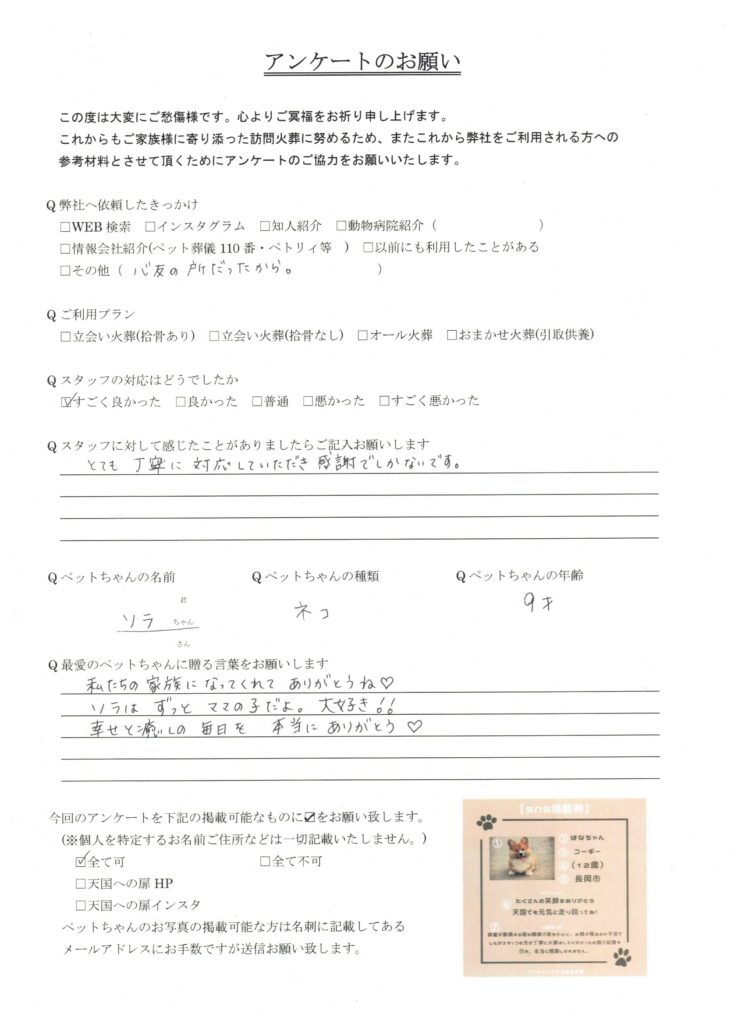 アンケートのお願い
この度は大変にご愁傷様です。心よりご冥福をお祈り申し上げます。
これからもご家族様に寄り添った訪問火葬に努めるため、またこれから弊社をご利用される方への
参考材料とさせて頂くためにアンケートのご協力をお願いいたします。
Q 弊社へ依頼したきっかけ
□WEB 検索 □インスタグラム □知人紹介 □動物病院紹介（ ）
□情報会社紹介(ペット葬儀 110 番・ペトリィ等 ) □以前にも利用したことがある
□その他（ 心友の所だったから。 ）
Q ご利用プラン
□立会い火葬(拾骨あり) □立会い火葬(拾骨なし) □オール火葬 □おまかせ火葬(引取供養)
Q スタッフの対応はどうでしたか
☑すごく良かった □良かった □普通 □悪かった □すごく悪かった
Q スタッフに対して感じたことがありましたらご記入お願いします
とても 丁寧に 対応していただき 感謝でしかないです。
Q ペットちゃんの名前 Q ペットちゃんの種類 Q ペットちゃんの年齢
君
ソラ ちゃん ネコ 9才
さん
Q 最愛のペットちゃんに贈る言葉をお願いします
私たちの 家族に なってくれて ありがとうね♡
ソラは ずっと ママの子だよ。 大好き!!
幸せと癒しの 毎日を 本当に ありがとう ♡
今回のアンケートを下記の掲載可能なものに☑をお願い致します。
(※個人を特定するお名前ご住所などは一切記載いたしません。)
☑全て可 □全て不可
□天国への扉 HP
□天国への扉インスタ
ペットちゃんのお写真の掲載可能な方は名刺に記載してある
メールアドレスにお手数ですが送信お願い致します。
【sns掲載例】
① ② はなちゃん
③ コーギー
④ （12歳）
⑤ 長岡市
⑥ たくさんの笑顔をありがとう
天国でも元気に走り回ってね！
⑦